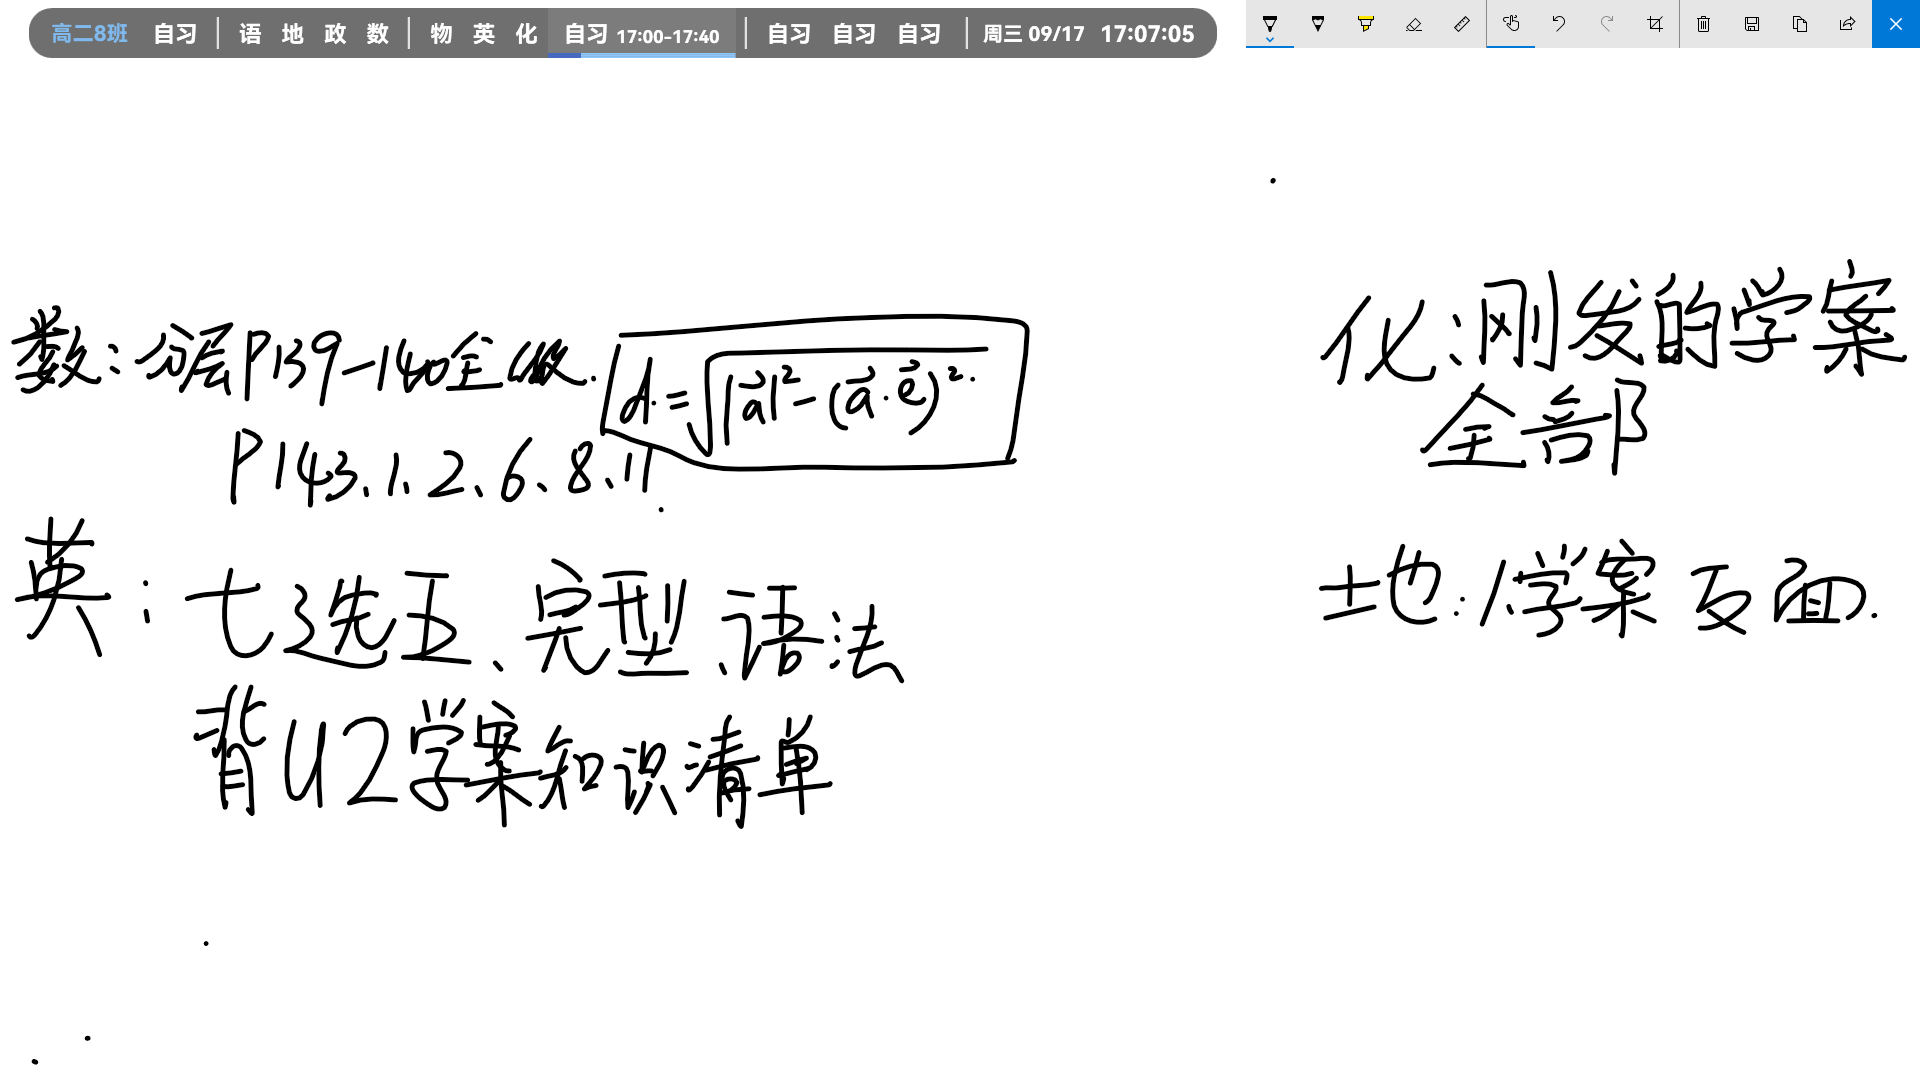 高二8班 自习 | 语 地 政 数 | 物 英 化 自习 17:00-17:40 | 自习 自习 自习 | 周三 09/17 17:07:05
数：分层P139-140全做.
d=√(|a⃗|²-(a⃗·e⃗)²
P143、1、2、6、8、11
英：七选五、完型、语法
背U2学案知识清单
化：刚发的学案
全部
地：1.学案反面.